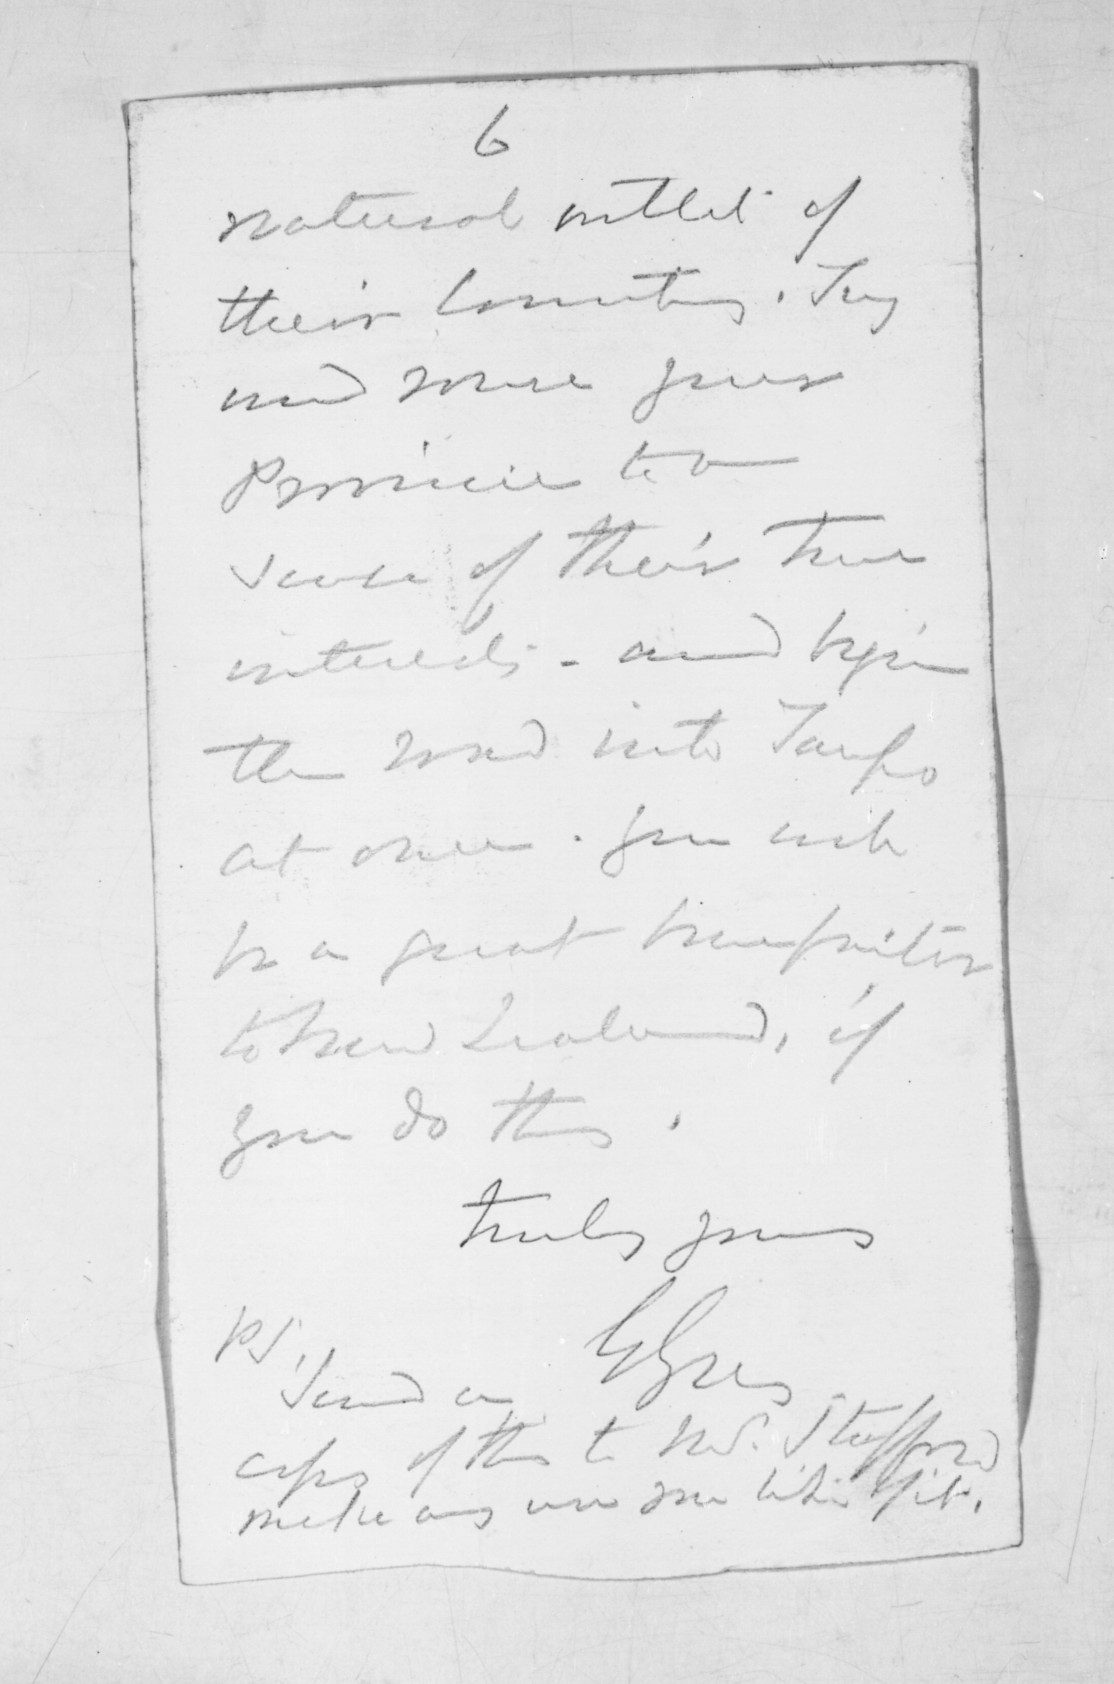 6
natural outlet of
their country. Try
and rouse your
Province to a
sense of their true
interests - and begin
the road into Taupo
at once. you will
be a great benefactor
to New Zealand, if
you do this.
truly yours
G Grey
PS.
Send a
copy of this to Mr. Stafford
make any use you like of it.